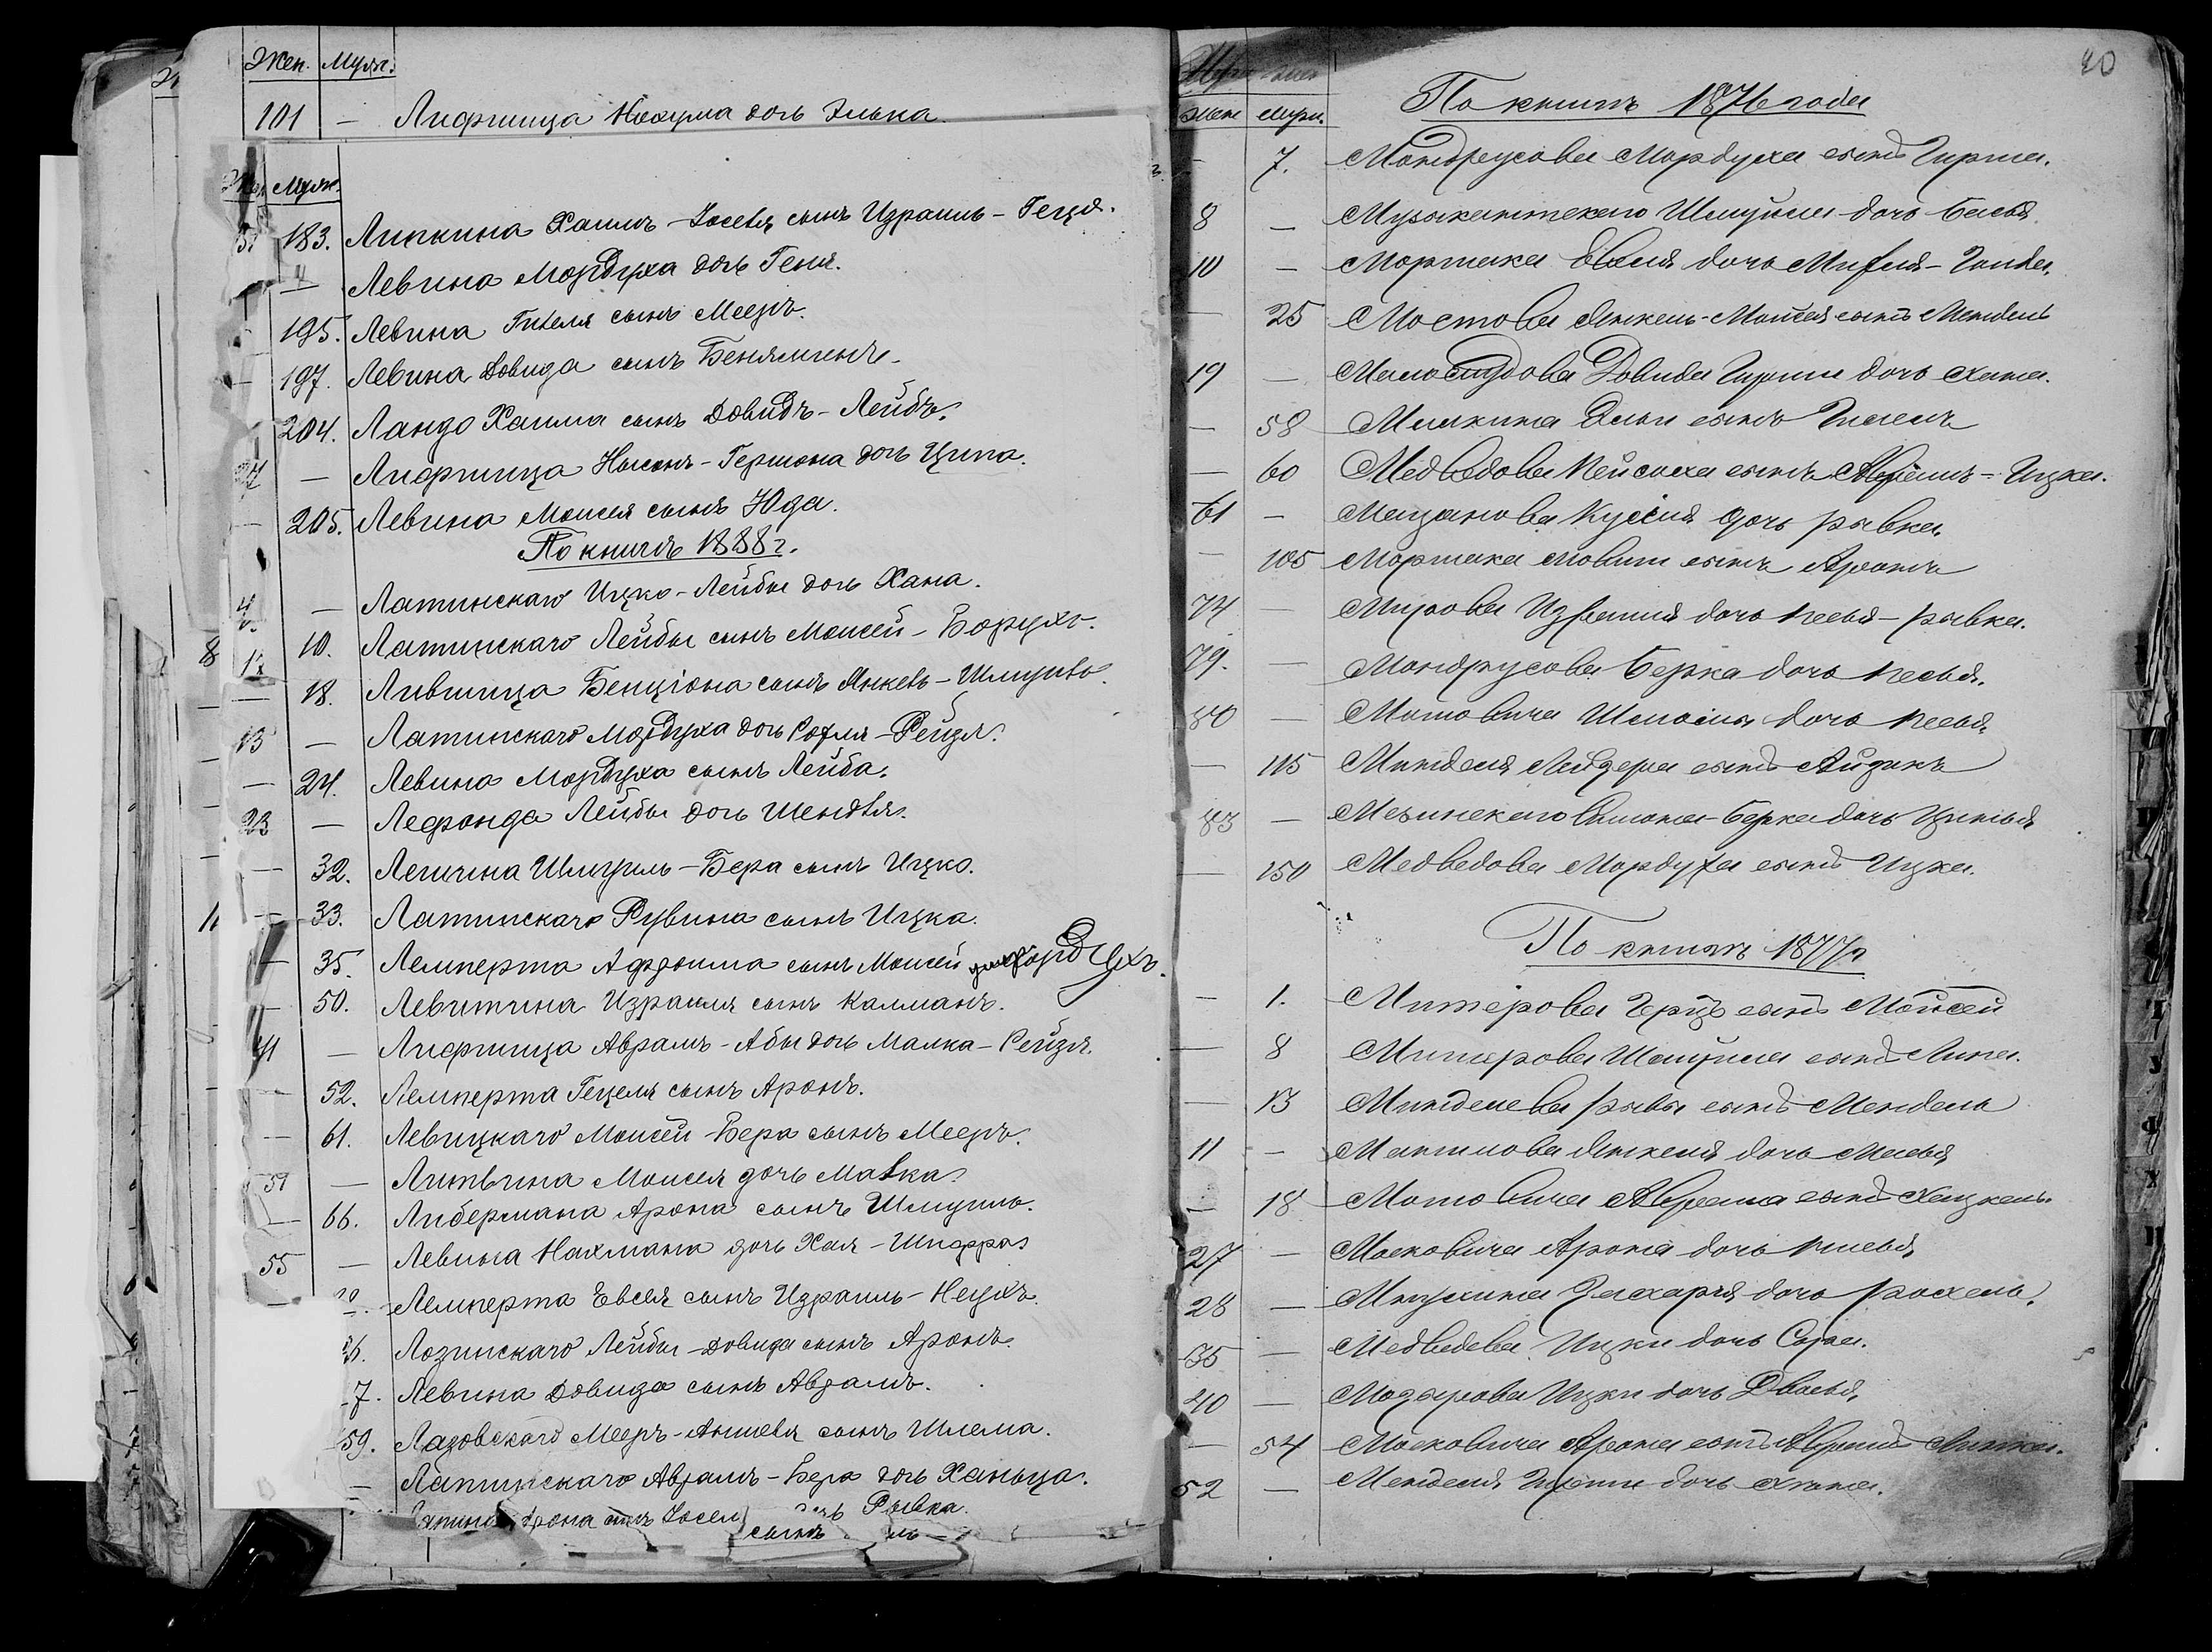 Жен. Муж.
101 — Лифшица Нохума дочь Элька.
Муж.
183. Липкина Хаимъ-Іоселя сынъ Израиль-Гецъ.
— Левина Мордуха дочь Геня.
195. Левина Гителя сынъ Мееръ.
— 197. Левина Довида сынъ Беняминъ.
204. Ландо Хаима сынъ Довидъ-Лейбъ.
— Лифшица Нысонъ-Гершона дочь Ципа.
— 205. Левина Моисея сынъ Юда.
По книгѣ 1888 г.
— Латинскаго Ицко-Лейбы дочь Хана.
10. Латинскаго Лейбы сынъ Моисей-Борухъ.
— 18. Лившица Бенціона сынъ Янкель-Шмуилъ.
13 — Латинскаго Мордуха дочь Рохля-Рейзл.
— 24. Левина Мордуха сынъ Лейба.
23 — Лефонда Лейбы дочь Шендля.
— 32. Лешчина Шмуиль-Бера сынъ Ицко.
— 33. Латинскаго Рувина сынъ Ицка.
— 35. Лемперта Афроима сынъ Моисей Мордухъ.
— 50. Левитина Израиля сынъ Калманъ.
41 — Лифшица Абрамъ-Абы дочь Малка-Рейзл.
— 52. Лемперта Гецеля сынъ Аронъ.
— 61. Левицкаго Моисей-Бера сынъ Мееръ.
51 — Литвина Моисея дочь Малка.
— 66. Либермана Арона сынъ Шмуилъ.
55 — Левина Нахмана дочь Хая-Шифра.
— Лемперта Евсея сынъ Израиль-Неухъ.
Лозинскаго Лейбы-Довида сынъ Аронъ.
7. Левина Довида сынъ Абрамъ.
59. Лазовскаго Мееръ-Аншеля сынъ Шлема.
— Латинскаго Абрамъ-Бера дочь Ханьца.
Арона Іосел Рывка.
сынъ
40
Жен Муж.
По книгѣ 1876 года
— 7. Мондрусова Мордуха сынъ Гирша.
8 — Музыкантскаго Шмуйла дочь Бася.
10 — Моршака дочь Мирля-Голда.
— 25 Мостова Янкель-Моисея сынъ Мендель
19 — Довида Гирши дочь Хана.
— 58 Милкина Эльи сынъ
— 60 Медведова Пейсаха сынъ Абрамъ-Ицка.
61 — Мазанова Кусіеля дочь Рывка.
— 105 Моршака Мовши сынъ Аронъ
74 — Мирова Израиля дочь Песя-Рывка.
79. — Мондрусова Берка дочь Песя.
80 — Мотовича Шлоймы дочь Песя.
— 115 Минделя Лейзера сынъ Айзикъ
83 — Симона-Берка дочь Ципья
— 150 Медведова Мордуха сынъ Ицка.
По книгѣ 1877 г
— 1. Митерова Герцъ сынъ Мойсей
— 8 Митерова Шмуйла сынъ Липа.
— 13 Минделева Рывы сынъ Мендель
11 — Янкеля дочь Масья
— 18 Мотовича Абрама сынъ Хацкель.
27 — Московича Арона дочь
28 — Захарья дочь Рохель.
35 — Медведева Ицки дочь Сора.
40 — Мозырова Ицки дочь Двося.
— 54 Московича Арона сынъ Абрамъ
52 — Менделя Гирши дочь Хана.